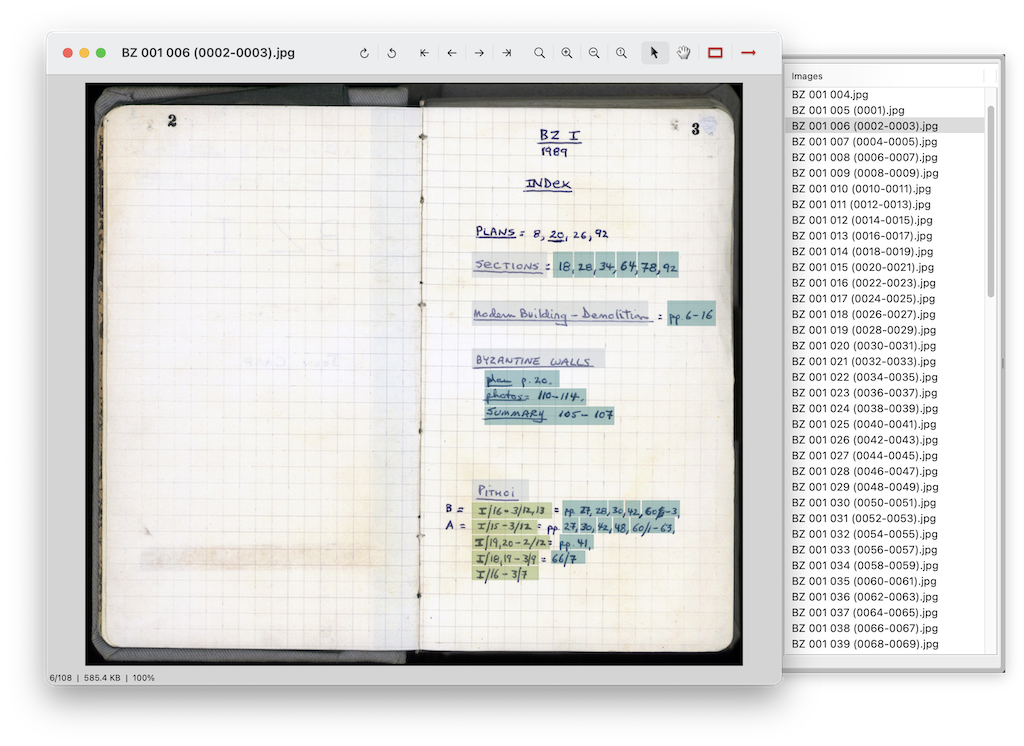 BZ 001 006 (0002-0003).jpg
2
3
BZ I
1989
INDEX
PLANS = 8, 20, 26, 92
SECTIONS = 18, 28, 34, 64, 78, 92
Modern Building - Demolition = pp. 6-16
BYZANTINE WALLS
plan p. 20.
photos = 110-114.
SUMMARY 105-107
Pithoi
B = I/16-3/12,13 = pp. 27, 28, 30, 42,
A = I/15-3/12 = pp. 27, 30, 42, 48, 60/1-63,
I/19,20-2/12 = pp. 41,
I/18,19-3/9 = 66/7
I/16-3/7
6/108 | 585.4 KB | 100%
Images
BZ 001 004.jpg
BZ 001 005 (0001).jpg
BZ 001 006 (0002-0003).jpg
BZ 001 007 (0004-0005).jpg
BZ 001 008 (0006-0007).jpg
BZ 001 009 (0008-0009).jpg
BZ 001 010 (0010-0011).jpg
BZ 001 011 (0012-0013).jpg
BZ 001 012 (0014-0015).jpg
BZ 001 013 (0016-0017).jpg
BZ 001 014 (0018-0019).jpg
BZ 001 015 (0020-0021).jpg
BZ 001 016 (0022-0023).jpg
BZ 001 017 (0024-0025).jpg
BZ 001 018 (0026-0027).jpg
BZ 001 019 (0028-0029).jpg
BZ 001 020 (0030-0031).jpg
BZ 001 021 (0032-0033).jpg
BZ 001 022 (0034-0035).jpg
BZ 001 023 (0036-0037).jpg
BZ 001 024 (0038-0039).jpg
BZ 001 025 (0040-0041).jpg
BZ 001 026 (0042-0043).jpg
BZ 001 027 (0044-0045).jpg
BZ 001 028 (0046-0047).jpg
BZ 001 029 (0048-0049).jpg
BZ 001 030 (0050-0051).jpg
BZ 001 031 (0052-0053).jpg
BZ 001 032 (0054-0055).jpg
BZ 001 033 (0056-0057).jpg
BZ 001 034 (0058-0059).jpg
BZ 001 035 (0060-0061).jpg
BZ 001 036 (0062-0063).jpg
BZ 001 037 (0064-0065).jpg
BZ 001 038 (0066-0067).jpg
BZ 001 039 (0068-0069).jpg